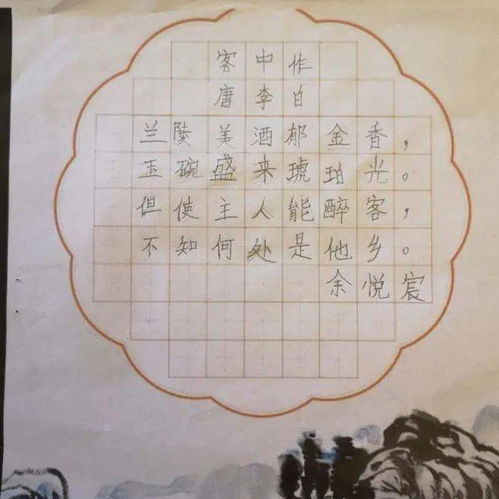 客中作
唐李白
兰陵美酒郁金香，
玉碗盛来琥珀光。
但使主人能醉客，
不知何处是他乡。
余悦宸